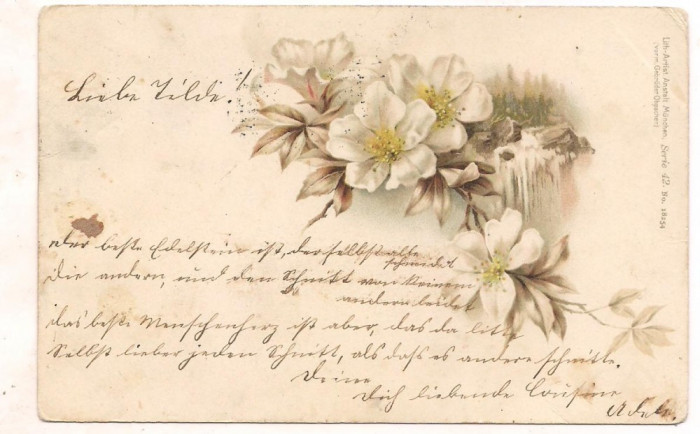 Liebe Tilde!
Der beste Edelstein ist, der selbst alle
schneidet
die andern, und den Schnitt von keinem
andern leidet
das beste Menschenherz ist aber, das da litte
Selbst lieber jeden Schnitt, als dass es andere schnitte.
Deine
Dich liebende Cousine
Adele.
Lith.-Artist. Anstalt München,
(vorm. Gebrüder Obpacher)
Serie 42. No. 18234